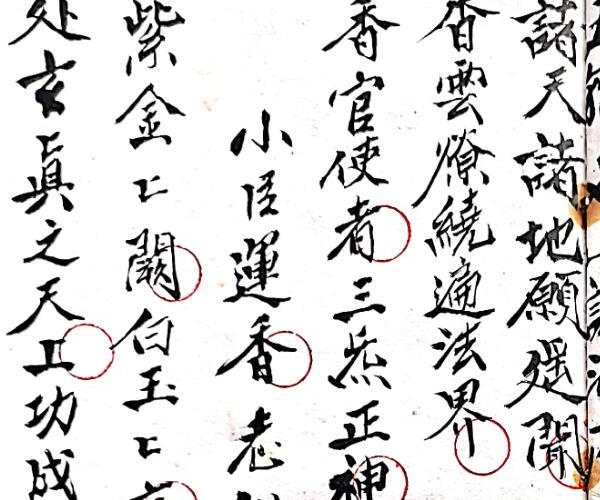 諸天諸地願遥聞
香雲燎繞通法界
香官使者三炁正神
小臣運香老
紫金匕匕闕白玉匕匕
处玄匕真之天工功成